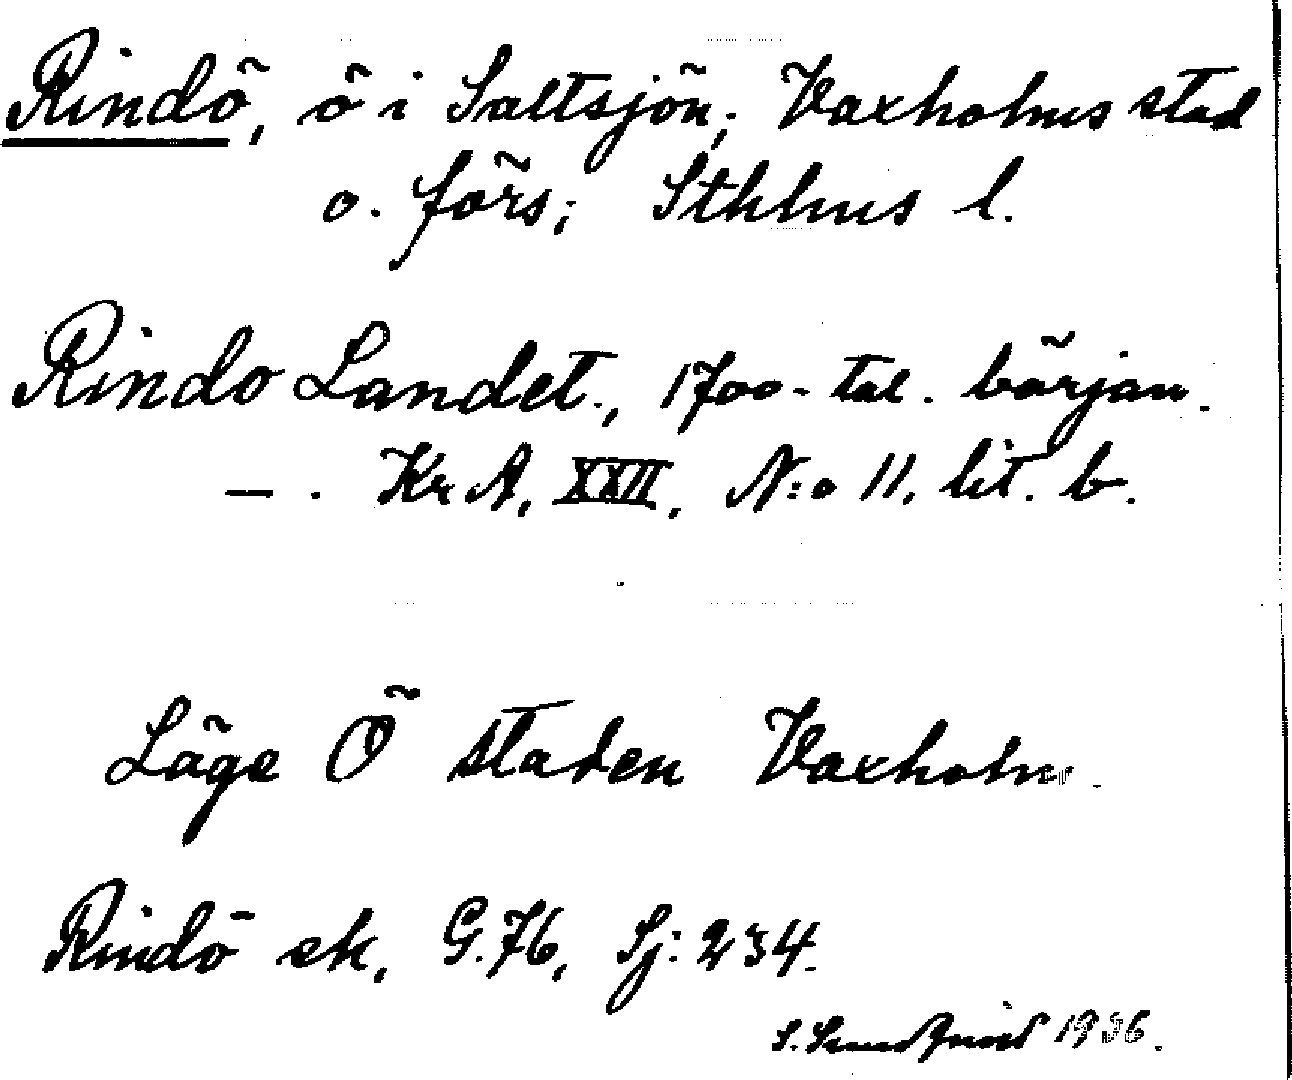 Rindö, ö i Saltsjön; Vaxholms stad
o. förs; Sthlms l.
Rindo Landet., 1700-tal. början.
— . KrA, XXII, N:o 11. lit. b.
Läge Ö staden Vaxholm.
Rindö ek, G.76, Sj: 234.
S. 1936.